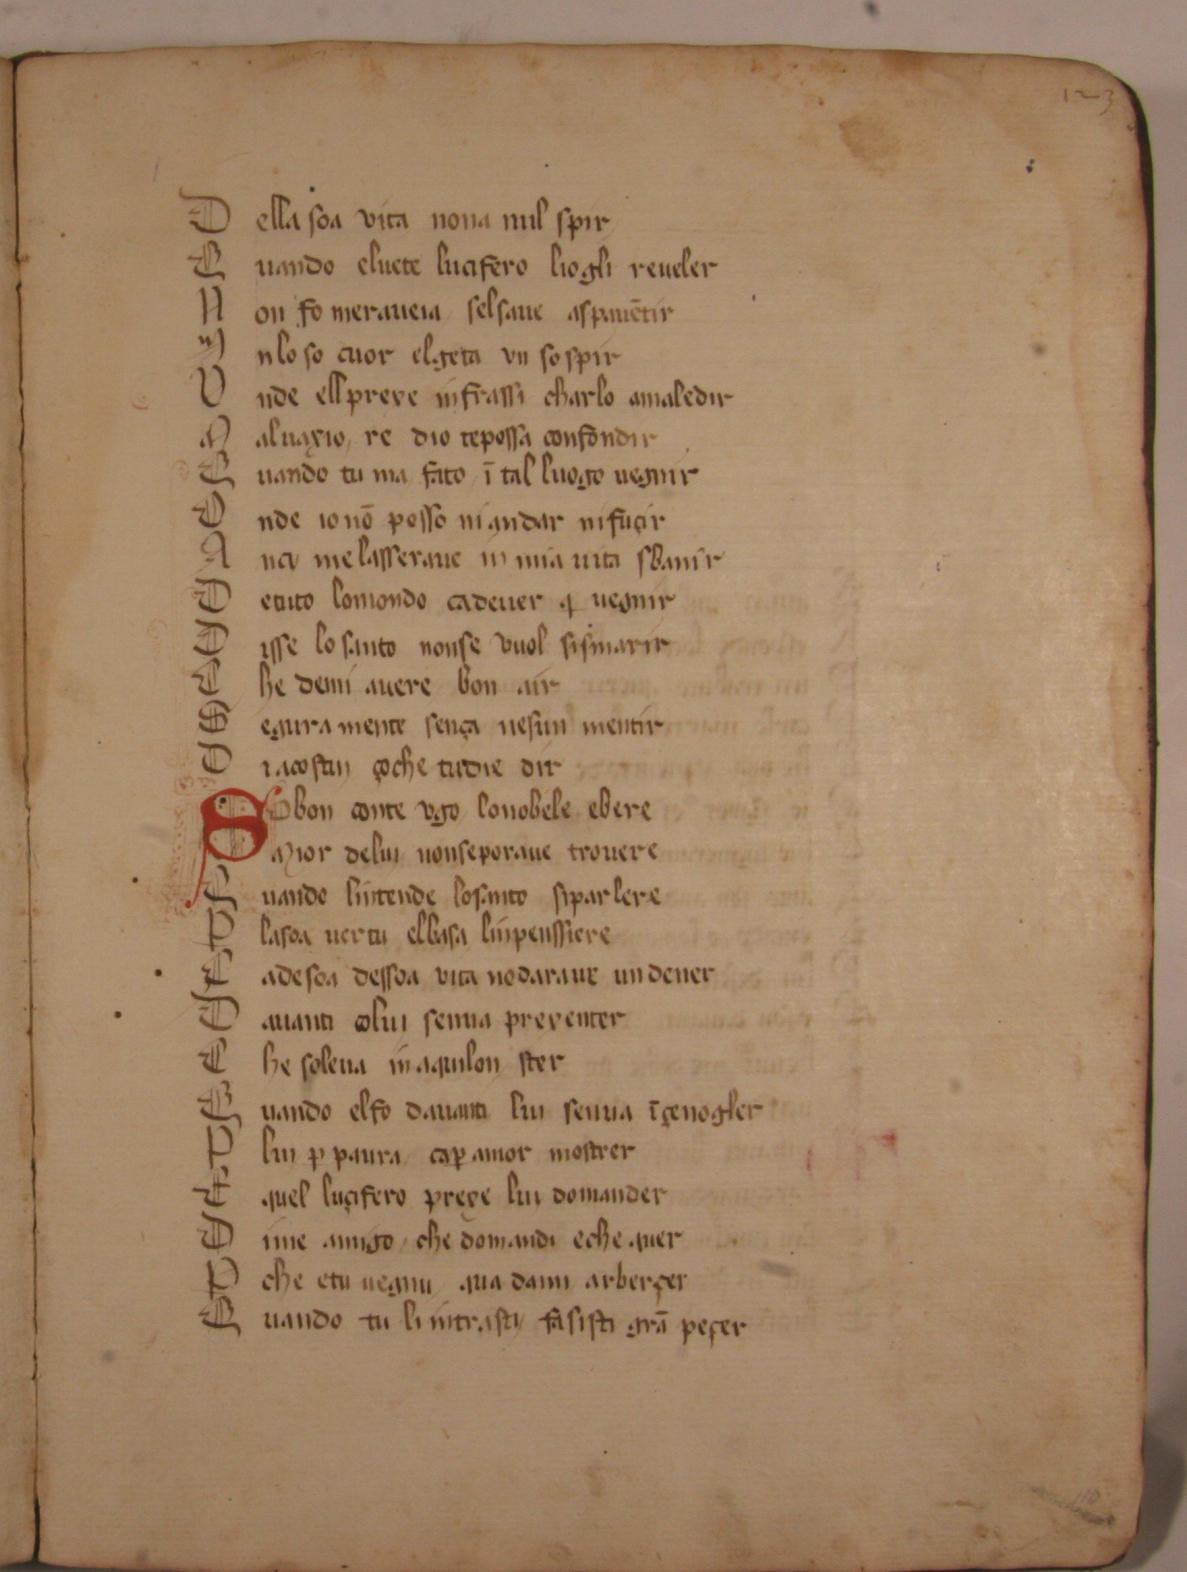 123
D ella soa vita nona nul spir
Q uando eluete lucifero liogli reueler
N on fo meraueia selsaue aspauētir
I nlo so cuor elgeta vn sospir
V nde ellprexe infrassi charlo amaledir
M aluaxio re dio tepossa confondir
Q uando tu ma fato ī tal luogo uegnir
O nde io nō posso ni andar nifuçir
A nci me lasseraue in mia uita sbanir
D etuto lomondo cadeuer ꝑ uegnir
D isse lo santo nonse vuol sismarir
C he demi auere bon air
S egura mente sença nesun mentir
D iacostui çoche tudie dir
So bon conte vgo lonobele ebere
M aior delui nonseporaue trouere
Q uando lintende losanto siparlere
P lasoa uertu elbasa linpenssiere
C adesoa dessoa vita nodaraue un dener
D auanti colui senua prexenter
C he soleua in aquilon ster
Q uando elfo dauanti lui senua īçenogler
P lui ꝑ paura çaꝑ amor mostrer
E quel luçifero prexe lui domander
D ime amigo che domandi eche quer
P che etu uegnu qua dami arberçer
Q uando tu li intrasti fasisti grā peçer